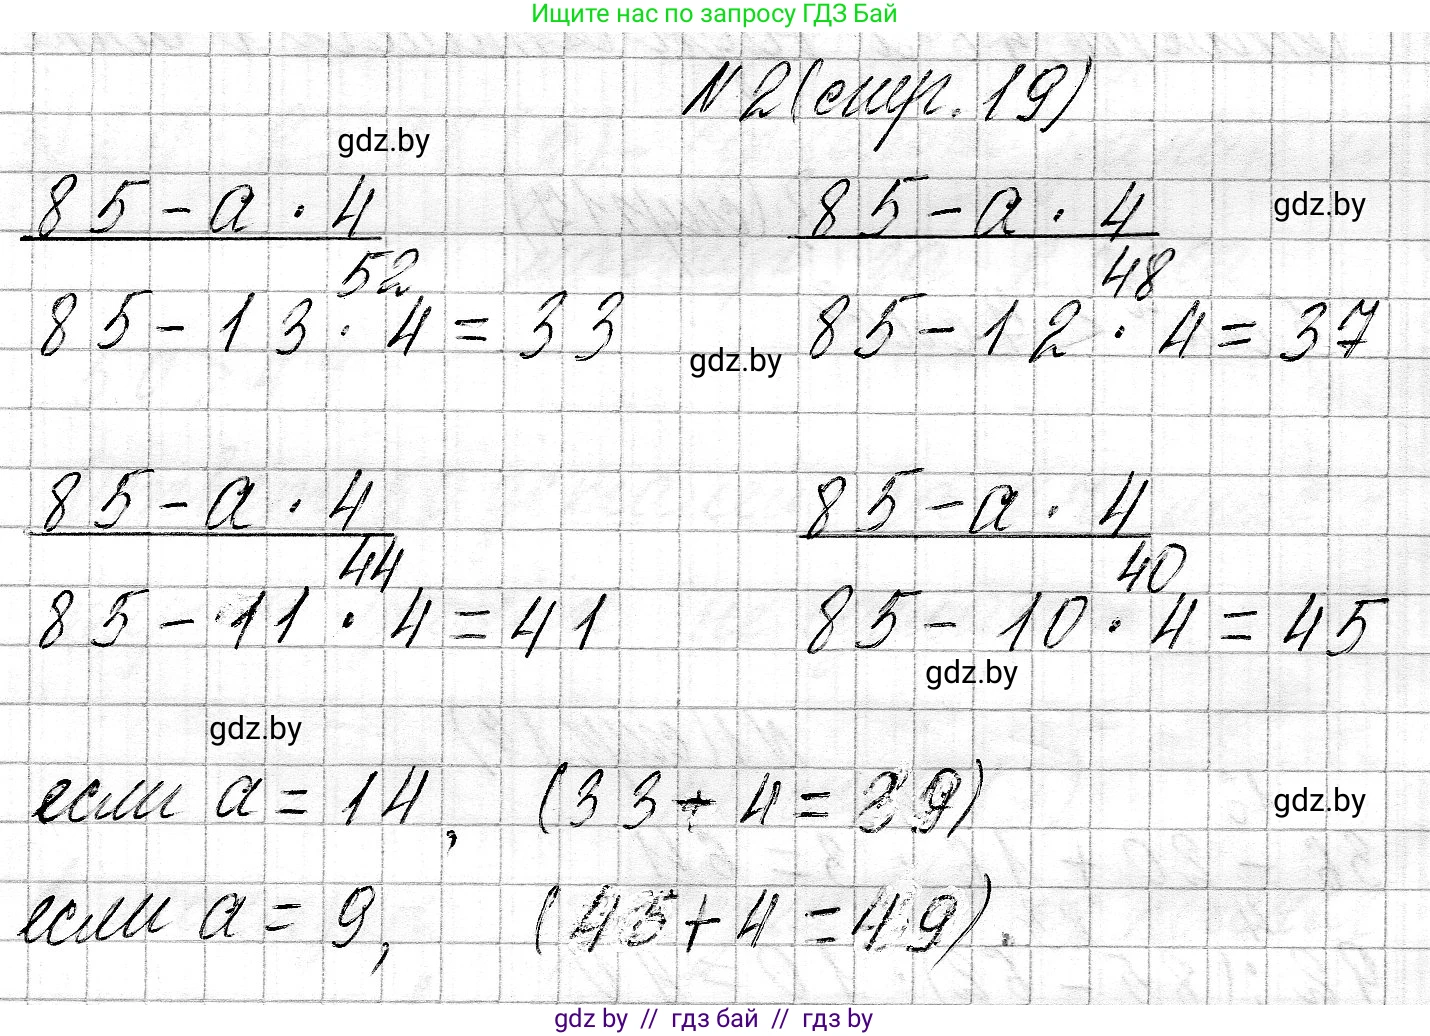 Ищите нас по запросу ГДЗ Бай
N 2 (стр. 19)
gdz.by
85 - а · 4
85 - а · 4
gdz.by
52
48
85 - 13 · 4 = 33
gdz.by
85 - 12 · 4 = 37
85 - а · 4
85 - а · 4
44
40
85 - 11 · 4 = 41
85 - 10 · 4 = 45
gdz.by
gdz.by
если а = 14, (33 + 4 = 29)
gdz.by
если а = 9, (45 + 4 = 49).
gdz.by // гдз бай // гдз by